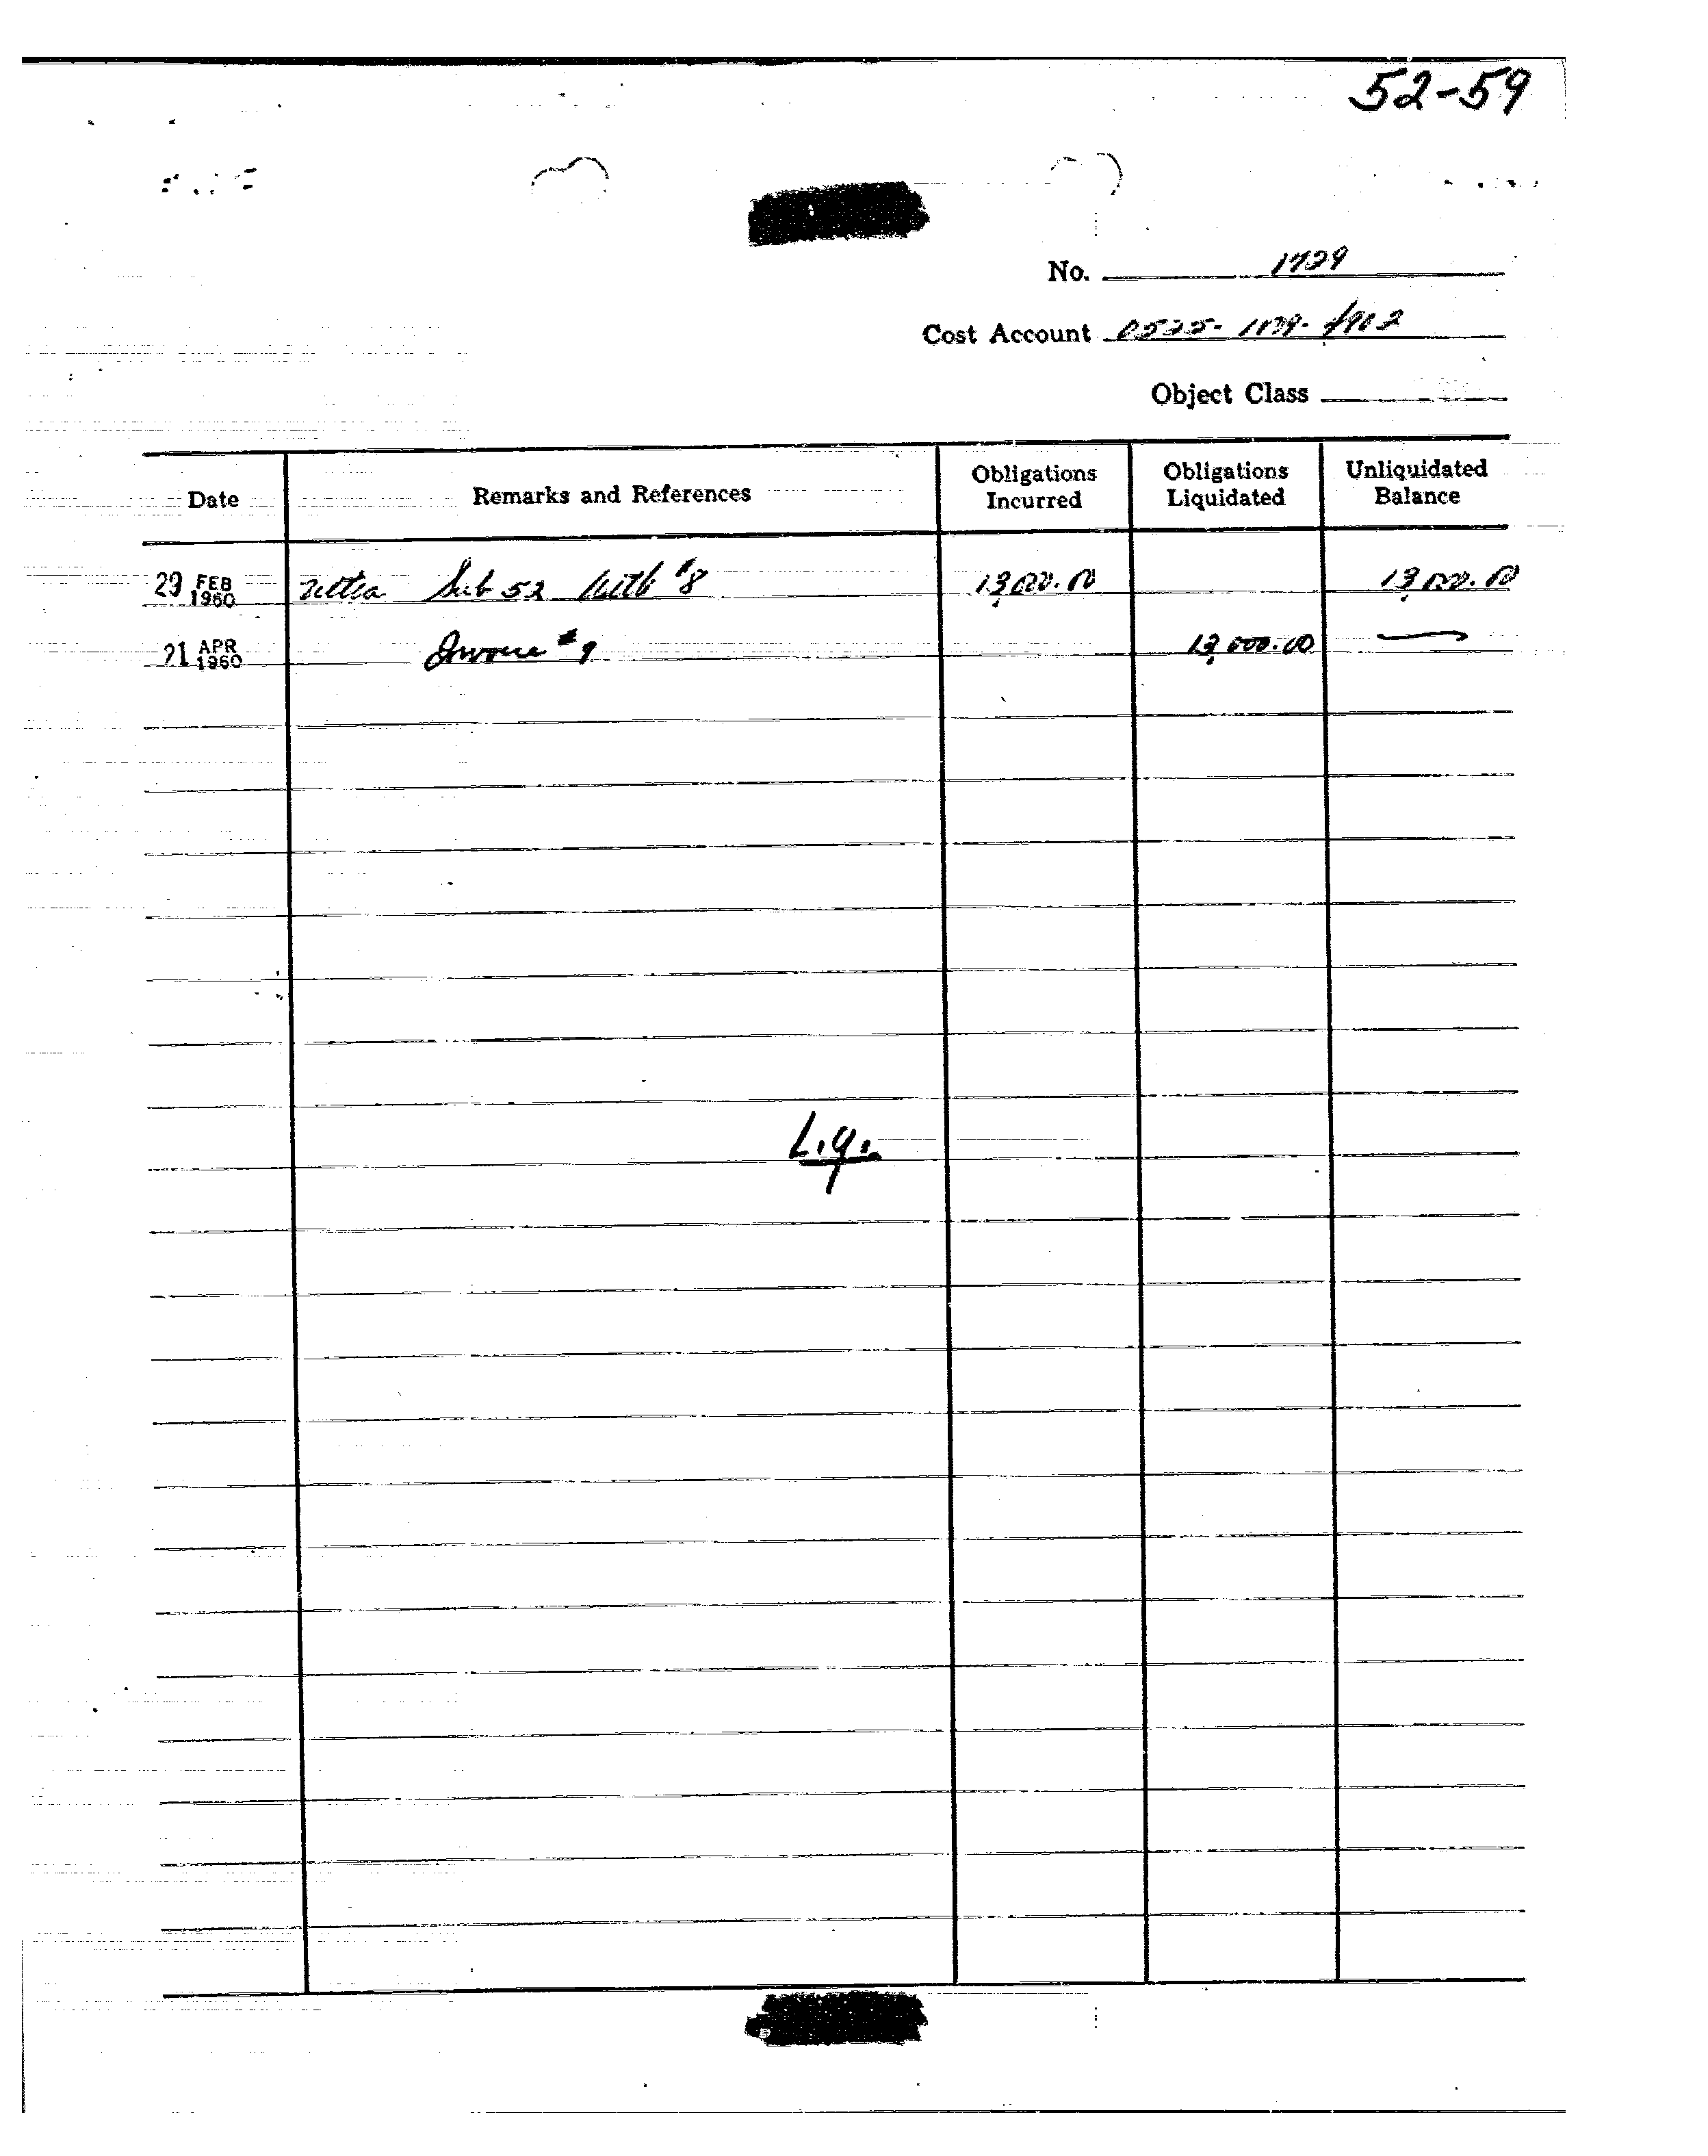 52-59
No. 1739
Cost Account
Object Class
Date Remarks and References Obligations Incurred Obligations Liquidated Unliquidated Balance
29 FEB 1960 Sub 52 #8 13,000.00 13,000.00
21 APR 1960 Invoice #9 13,000.00 —
Liq.